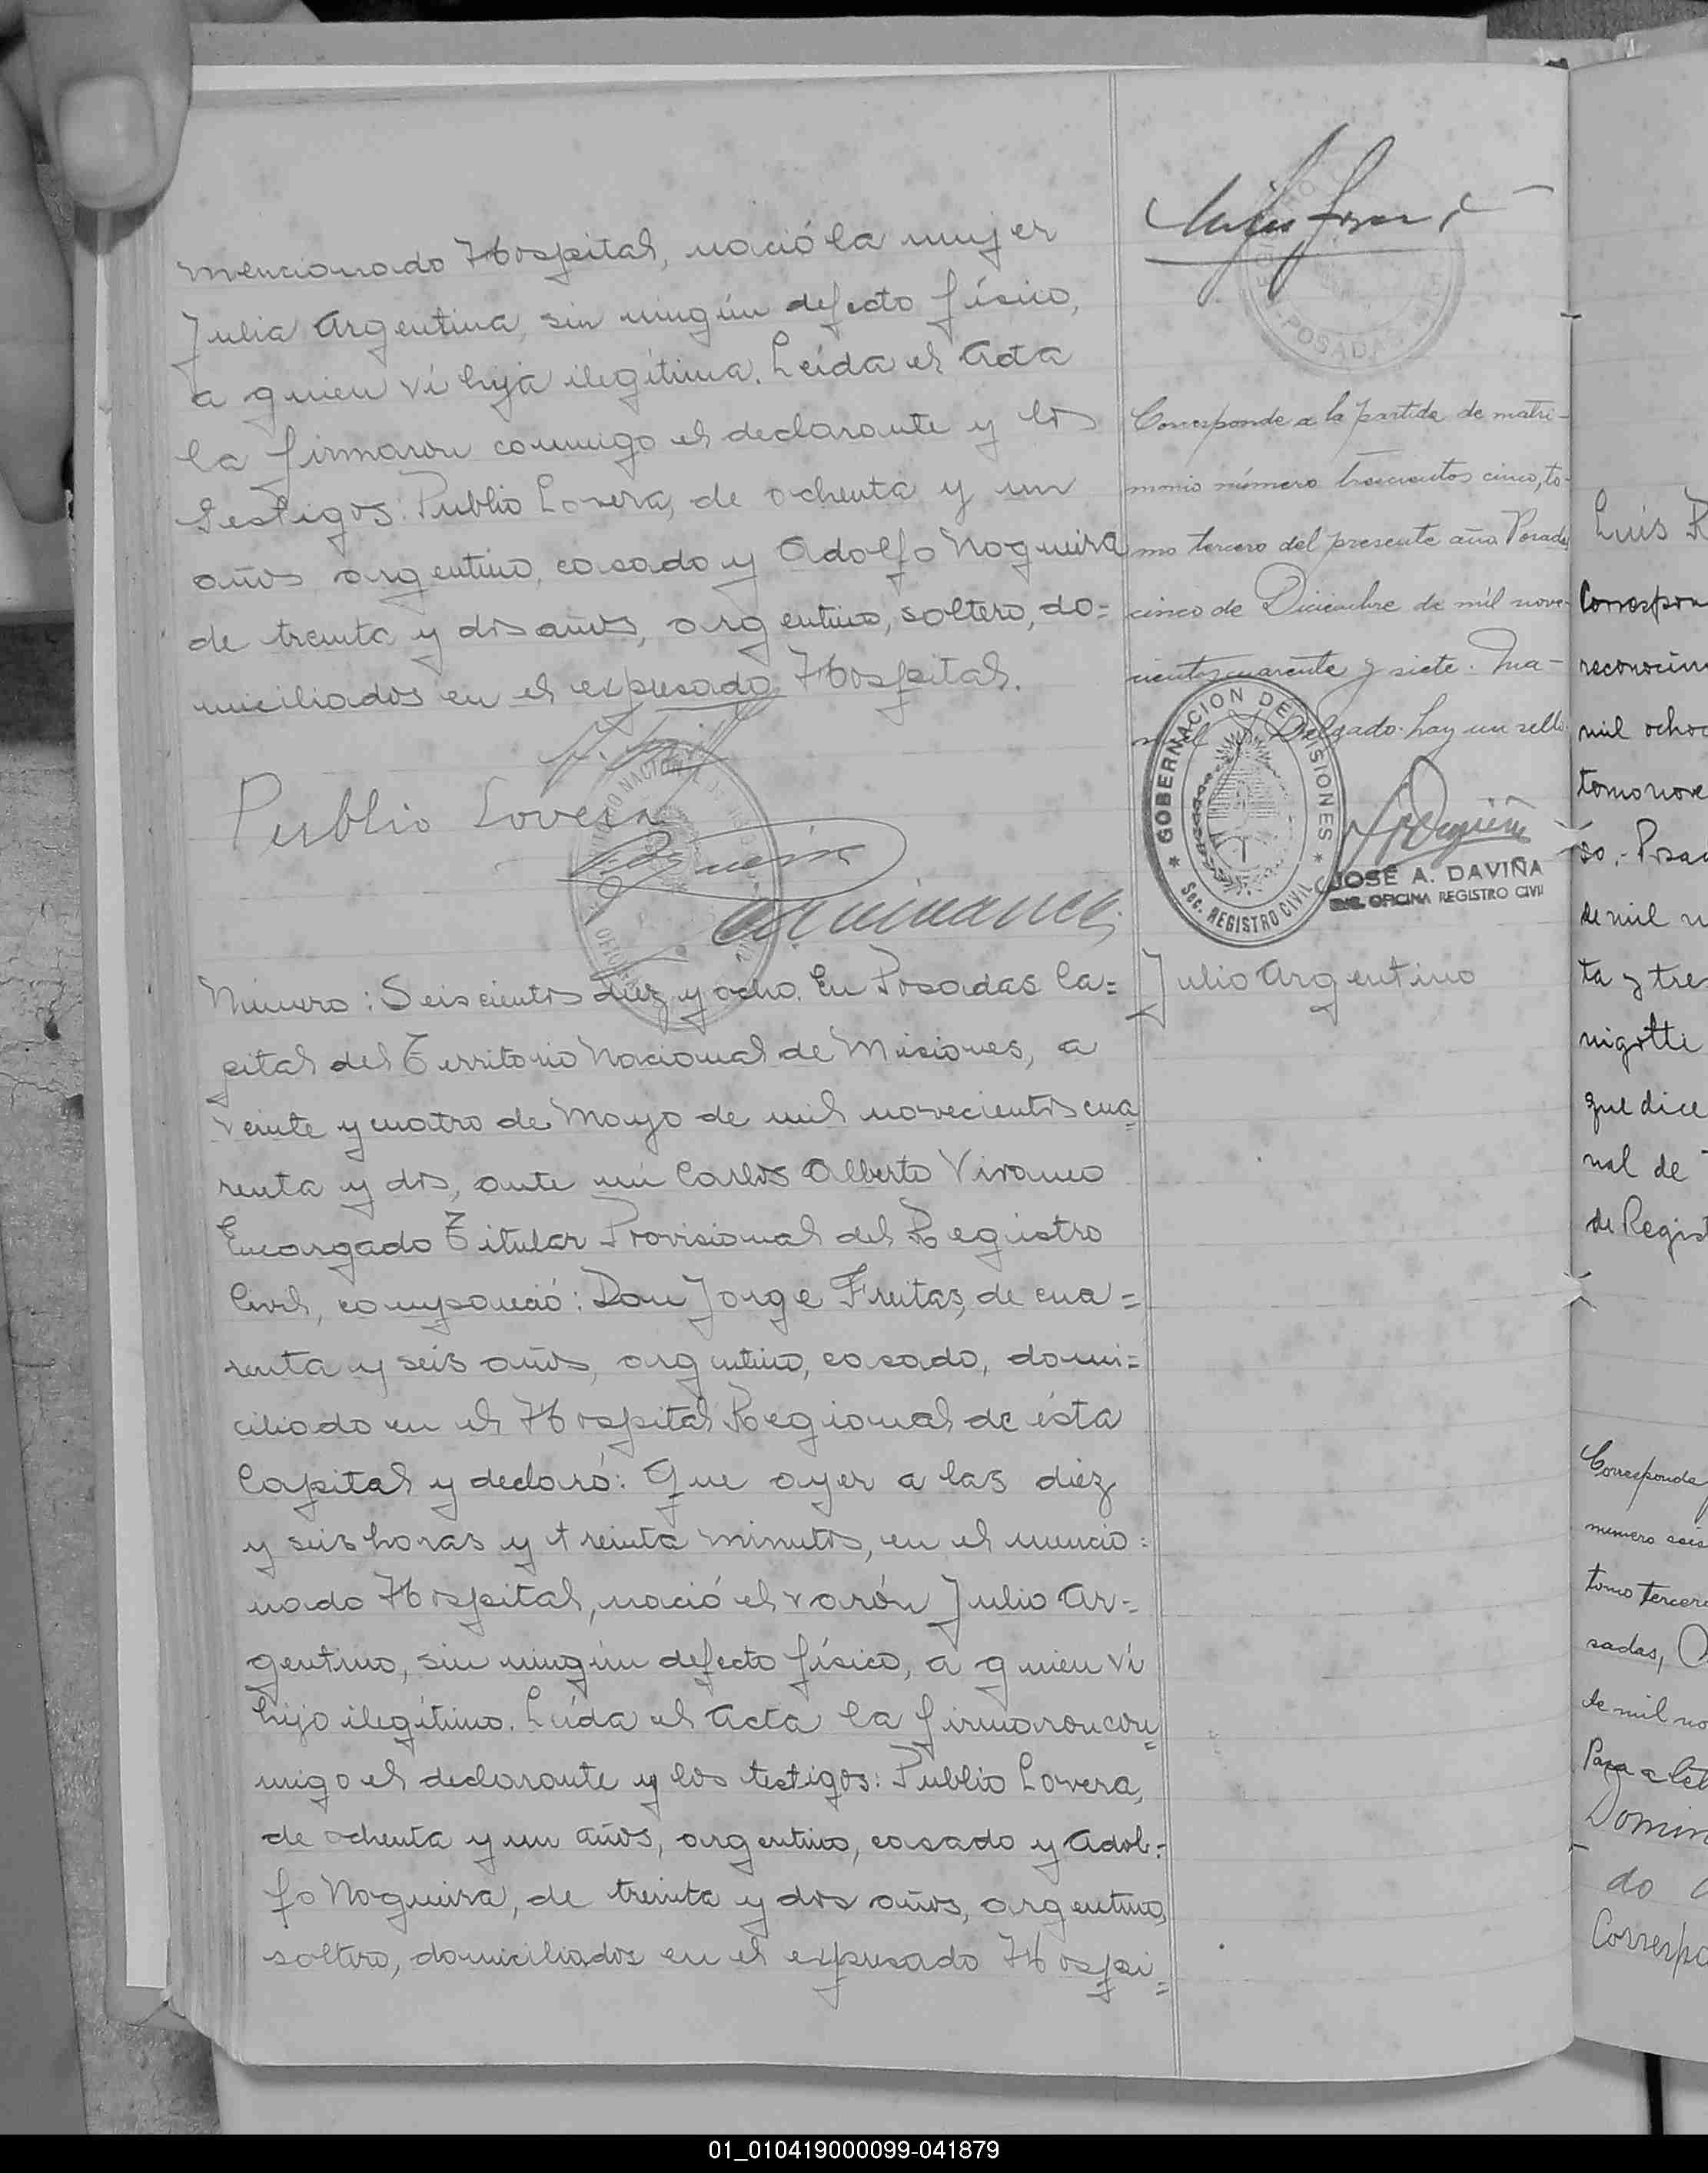 mencionado Hospital, nació la mujer
Julia Argentina, sin ningún defecto físico,
a quien ví hija ilegítima. Leída el Acta
la firmaron conmigo el declarante y los
testigos: Publio Lovera, de ochenta y un
años argentino, casado y Adolfo Nogueira
de treinta y dos años, argentino, soltero, do=
miciliados en el expresado Hospital.
Publio Lovera
Corresponde a la partida de matri-
monio número trescientos cinco, to-
mo tercero del presente año Posadas
cinco de Diciembre de mil nove-
cientos cuarenta y siete. Ma-
nuel Delgado. hay un sello.
GOBERNACION DE MISIONES
Sec. REGISTRO CIVIL
JOSE A. DAVIÑA
OFICINA REGISTRO CIVIL
POSADAS
Julio Argentino
Número: Seiscientos diez y ocho. En Posadas Ca=
pital del Territorio Nacional de Misiones, a
veinte y cuatro de Mayo de mil novecientos cua=
renta y dos, ante mi Carlos Alberto Vivanco
Encargado Titular Provisional del Registro
Civil, compareció: Don Jorge Freitas, de cua=
renta y seis años, argentino, casado, domi=
ciliado en el Hospital Regional de ésta
Capital y declaró: Que ayer a las diez
y seis horas y treinta minutos, en el mencio=
nado Hospital, nació el varón Julio Ar=
gentino, sin ningún defecto físico, a quien ví
hijo ilegítimo. Leída el Acta la firmaron con=
migo el declarante y los testigos: Publio Lovera,
de ochenta y un años, argentino, casado y Adol=
fo Nogueira, de treinta y dos años, argentino,
soltero, domiciliados en el expresado Hospi=
Luis R
Correspon
reconocim
mil ocho
tomo nove
so.- Posa
de mil n
ta y tres
nigotti
que dice
nal de
de Regist
Corresponde
numero seis
tomo tercero
sadas,
de mil no
Domin
do
Correspo
01_010419000099-041879